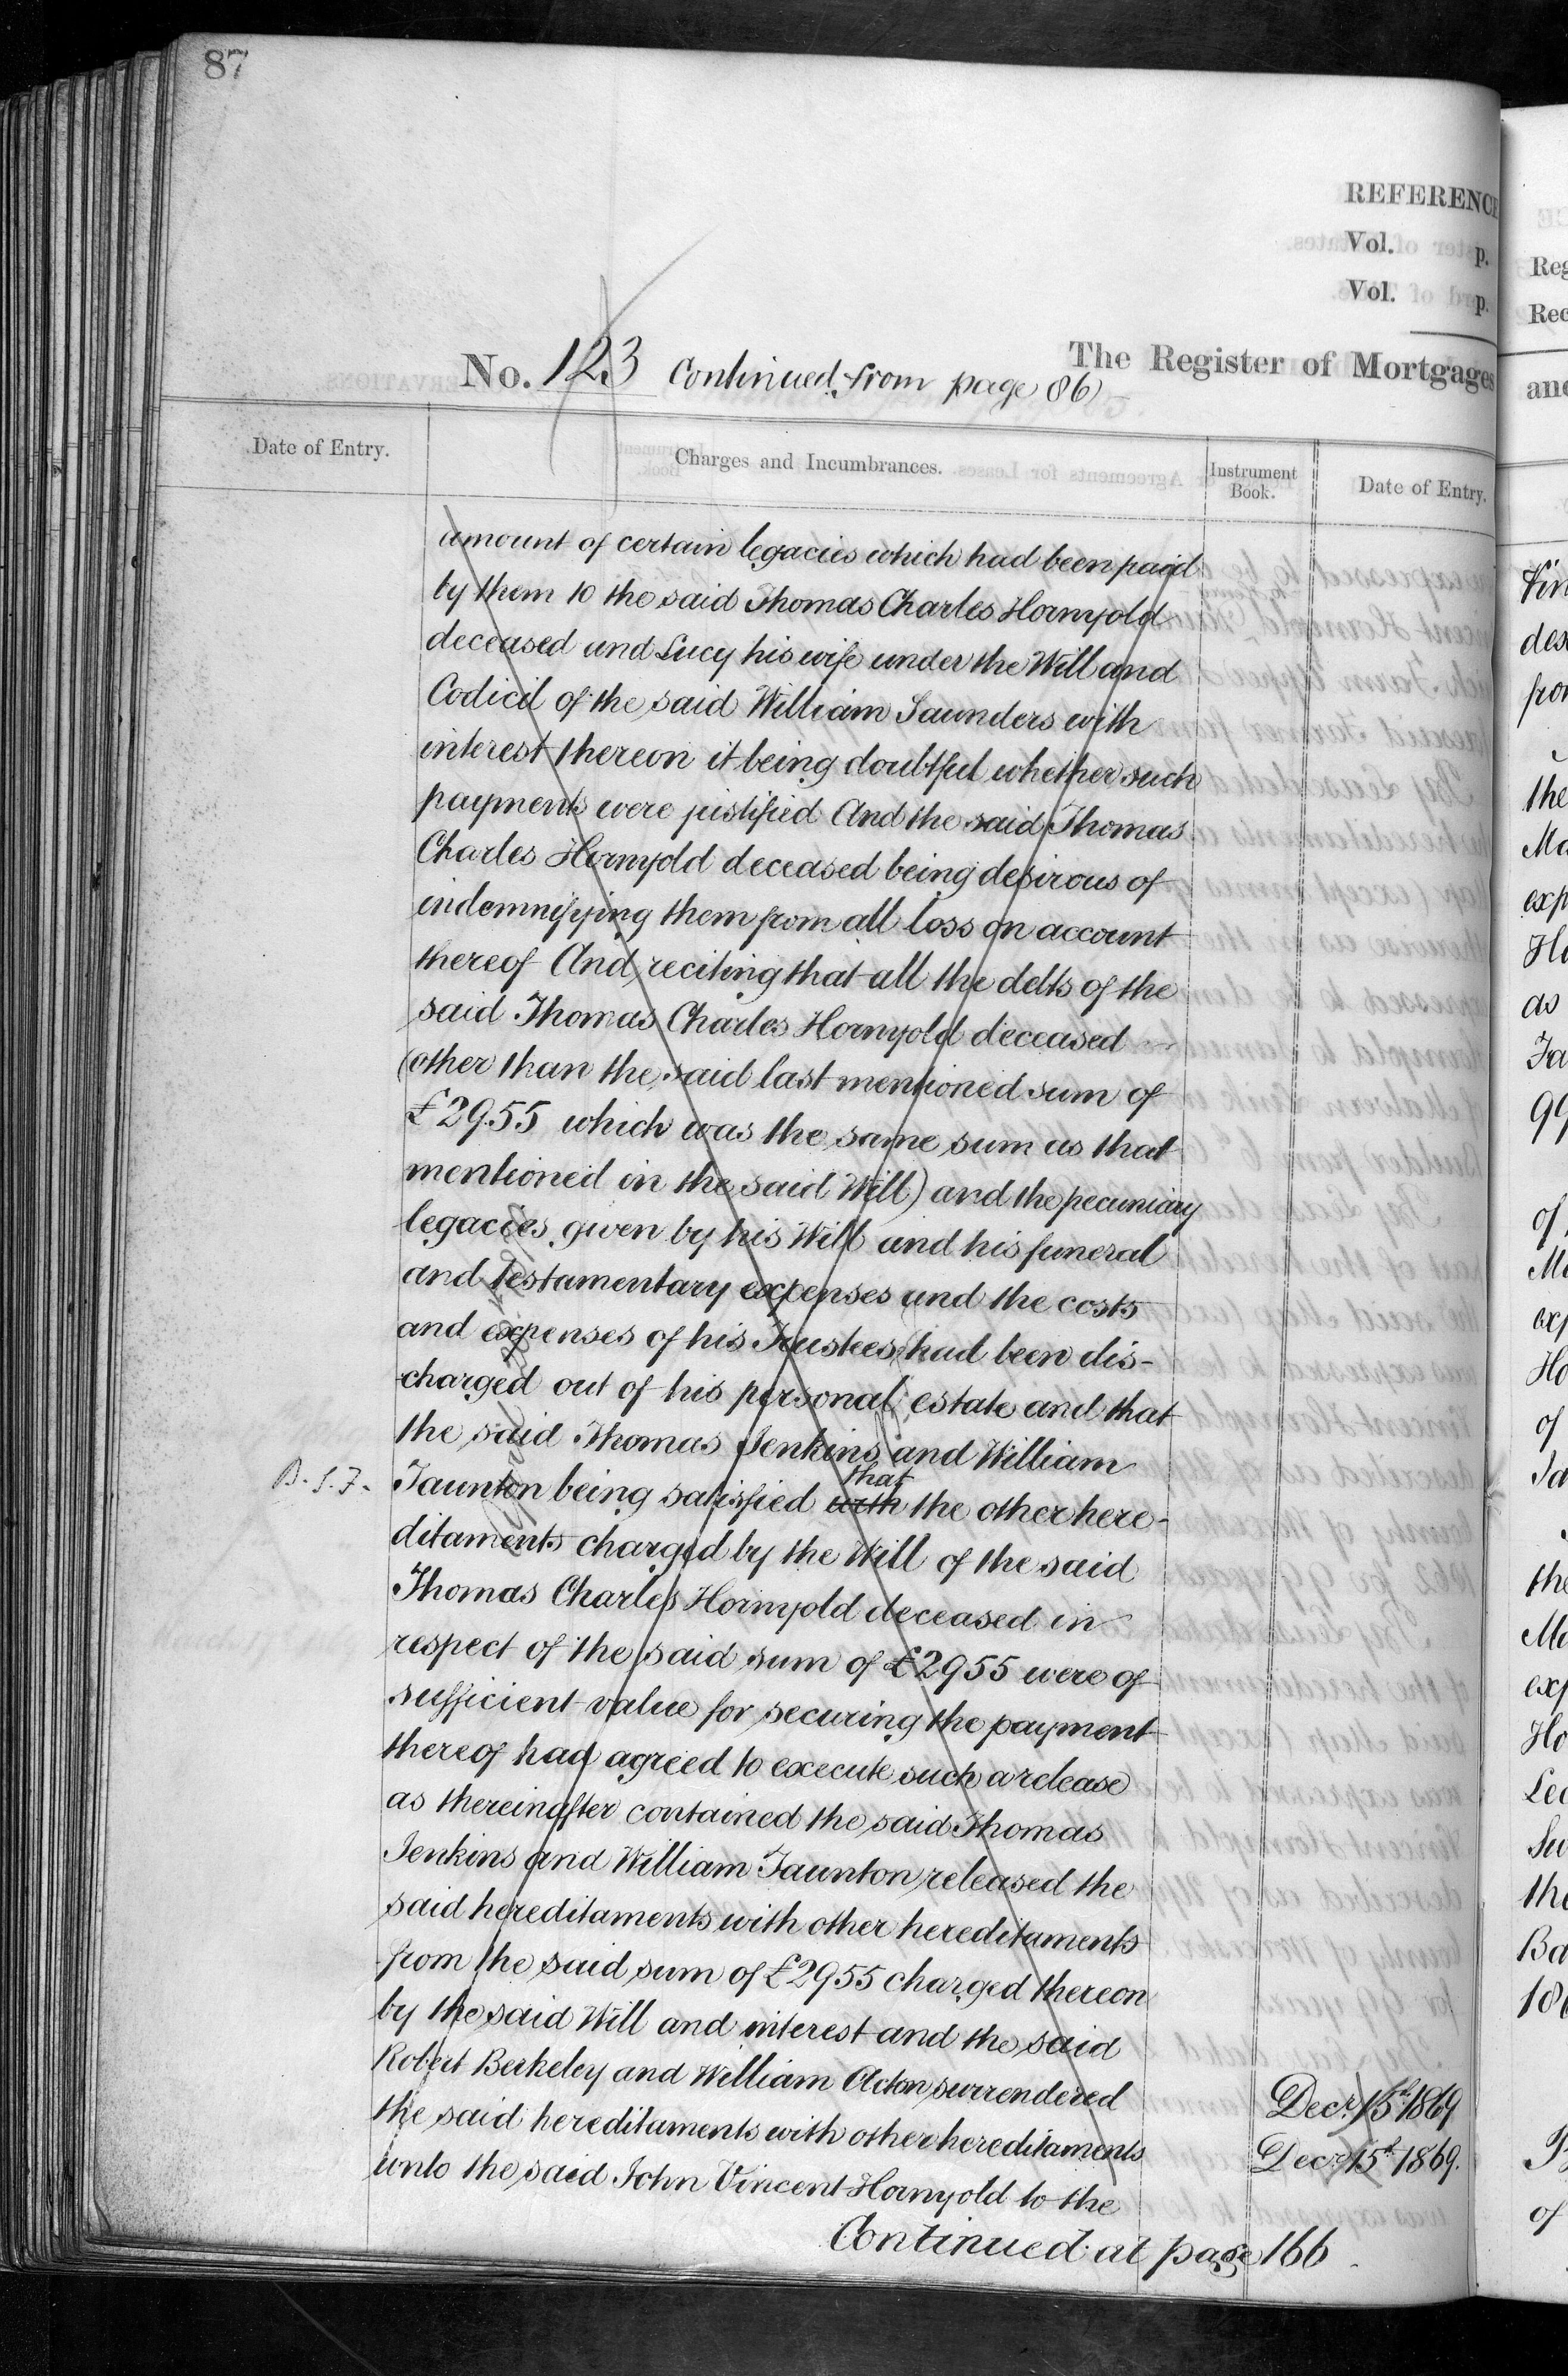 87
REFERENCE
Vol. p.
Vol. p.
No. 123 Continued from page 86
The Register of Mortgages
Date of Entry.
Charges and Incumbrances.
Instrument Book.
Date of Entry.
amount of certain legacies which had been paid
by them to the said Thomas Charles Hornyold
deceased and Lucy his wife under the Will and
Codicil of the said William Saunders with
interest thereon it being doubtful whether such
payments were justified And the said Thomas
Charles Hornyold deceased being desirous of
indemnifying them from all loss on account
thereof And reciting that all the debts of the
said Thomas Charles Hornyold deceased
(other than the said last mentioned sum of
£2955 which was the same sum as that
mentioned in the said Will) and the pecuniary
legacies given by his Will and his funeral
and testamentary expenses and the costs
and expenses of his Trustees had been dis-
charged out of his personal estate and that
the said Thomas Jenkins and William
B.S.F. Taunton being satisfied with that the other here-
ditaments charged by the Will of the said
Thomas Charles Hornyold deceased in
respect of the said sum of £2955 were of
sufficient value for securing the payment
thereof had agreed to execute such a release
as thereinafter contained the said Thomas
Jenkins and William Taunton released the
said hereditaments with other hereditaments
from the said sum of £2955 charged thereon
by the said Will and interest and the said
Robert Berkeley and William Acton surrendered
the said hereditaments with other hereditaments
unto the said John Vincent Hornyold to the
Decr. 15th 1869
Decr. 15th 1869.
Continued at page 166